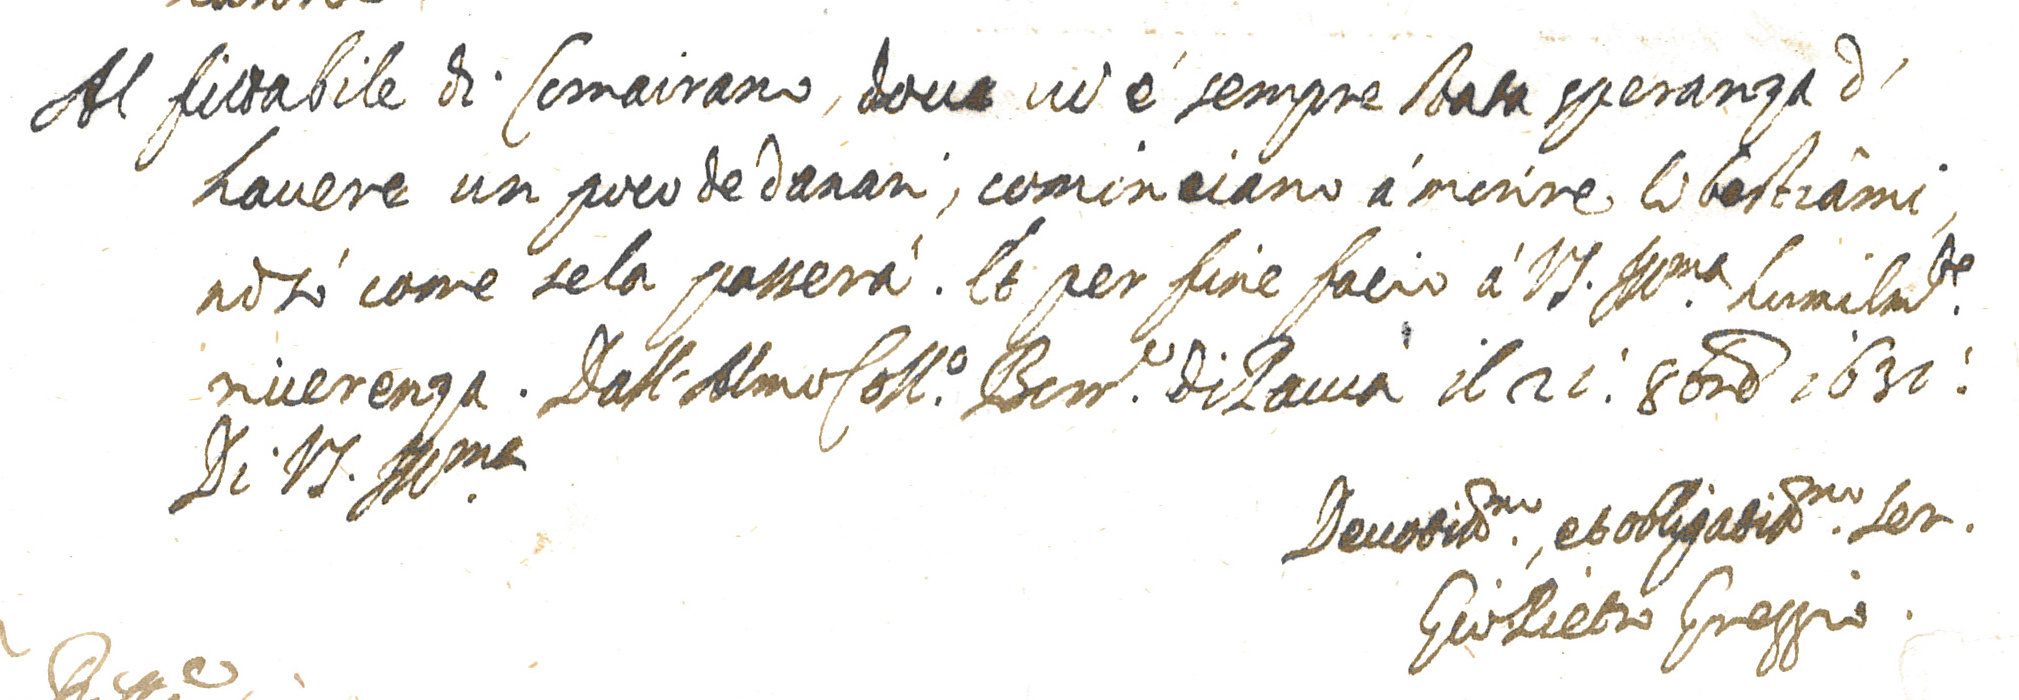 Al fittabile di Comairano, doue ui é sempre stata speranza d'
hauere un poco de danari, cominciano á morire li bestiami,
nó só come se la passerá. Et per fine facio á VS. Illma. humilmte.
riuerenza. Dall'Almo Collo. Borro. di Pauia il 21. 8bre 1631.
Di VS. Illma.
Deuotissmo., et obligatissmo. Ser.
Gio Pietro Greggio.